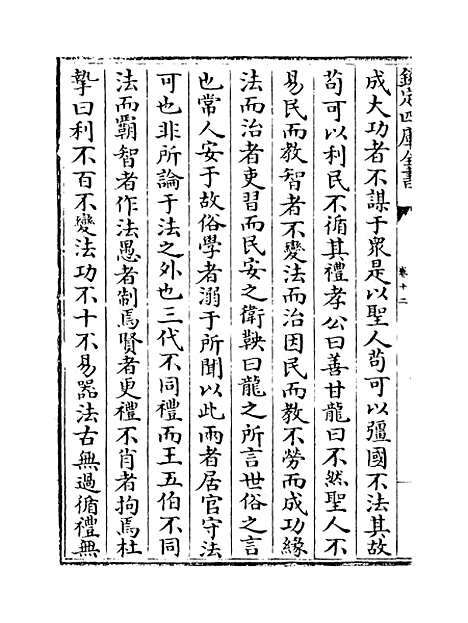 欽定四庫全書
卷十二
成大功者不謀于衆是以聖人苟可以彊國不法其故
苟可以利民不循其禮孝公曰善甘龍曰不然聖人不
易民而教智者不變法而治因民而教不勞而成功緣
法而治者吏習而民安之衛鞅曰龍之所言世俗之言
也常人安于故俗學者溺于所聞以此兩者居官守法
可也非所論于法之外也三代不同禮而王五伯不同
法而霸智者作法愚者制焉賢者更禮不肖者拘焉杜
摯曰利不百不變法功不十不易器法古無過循禮無